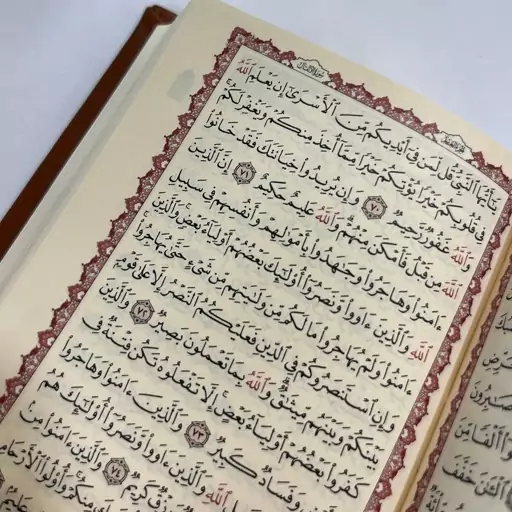 سورة الأنفال
يَٰٓأَيُّهَا ٱلنَّبِيُّ قُل لِّمَن فِيٓ أَيْدِيكُم مِّنَ ٱلْأَسْرَىٰٓ إِن يَعْلَمِ ٱللَّهُ
فِي قُلُوبِكُمْ خَيْرًا يُؤْتِكُمْ خَيْرًا مِّمَّآ أُخِذَ مِنكُمْ وَيَغْفِرْ لَكُمْ
وَٱللَّهُ غَفُورٌ رَّحِيمٌ ٧٠ وَإِن يُرِيدُوا۟ خِيَانَتَكَ فَقَدْ خَانُوا۟
ٱللَّهَ مِن قَبْلُ فَأَمْكَنَ مِنْهُمْ وَٱللَّهُ عَلِيمٌ حَكِيمٌ ٧١ إِنَّ ٱلَّذِينَ
ءَامَنُوا۟ وَهَاجَرُوا۟ وَجَٰهَدُوا۟ بِأَمْوَٰلِهِمْ وَأَنفُسِهِمْ فِي سَبِيلِ
ٱللَّهِ وَٱلَّذِينَ ءَاوَوا۟ وَّنَصَرُوٓا۟ أُو۟لَٰٓئِكَ بَعْضُهُمْ أَوْلِيَآءُ بَعْضٍ وَٱلَّذِينَ
ءَامَنُوا۟ وَلَمْ يُهَاجِرُوا۟ مَا لَكُم مِّن وَلَٰيَتِهِم مِّن شَيْءٍ حَتَّىٰ يُهَاجِرُوا۟
وَإِنِ ٱسْتَنصَرُوكُمْ فِي ٱلدِّينِ فَعَلَيْكُمُ ٱلنَّصْرُ إِلَّا عَلَىٰ قَوْمٍۭ
بَيْنَكُمْ وَبَيْنَهُم مِّيثَٰقٌ وَٱللَّهُ بِمَا تَعْمَلُونَ بَصِيرٌ ٧٢ وَٱلَّذِينَ
كَفَرُوا۟ بَعْضُهُمْ أَوْلِيَآءُ بَعْضٍ إِلَّا تَفْعَلُوهُ تَكُن فِتْنَةٌ فِي
وَفَسَادٌ كَبِيرٌ ٧٣ وَٱلَّذِينَ ءَامَنُوا۟ وَهَاجَرُوا۟
ٱللَّهِ وَٱلَّذِينَ ءَاوَوا۟ وَّنَصَرُوٓا۟ أُو۟لَٰٓئِكَ هُمُ
رِزْقٌ كَرِيمٌ ٧٤ وَٱلَّذِينَ ءَامَنُوا۟ مِنۢ
مِنكُمْ وَأُو۟لُوا۟ ٱلْأَرْحَامِ
عَلِيمٌ